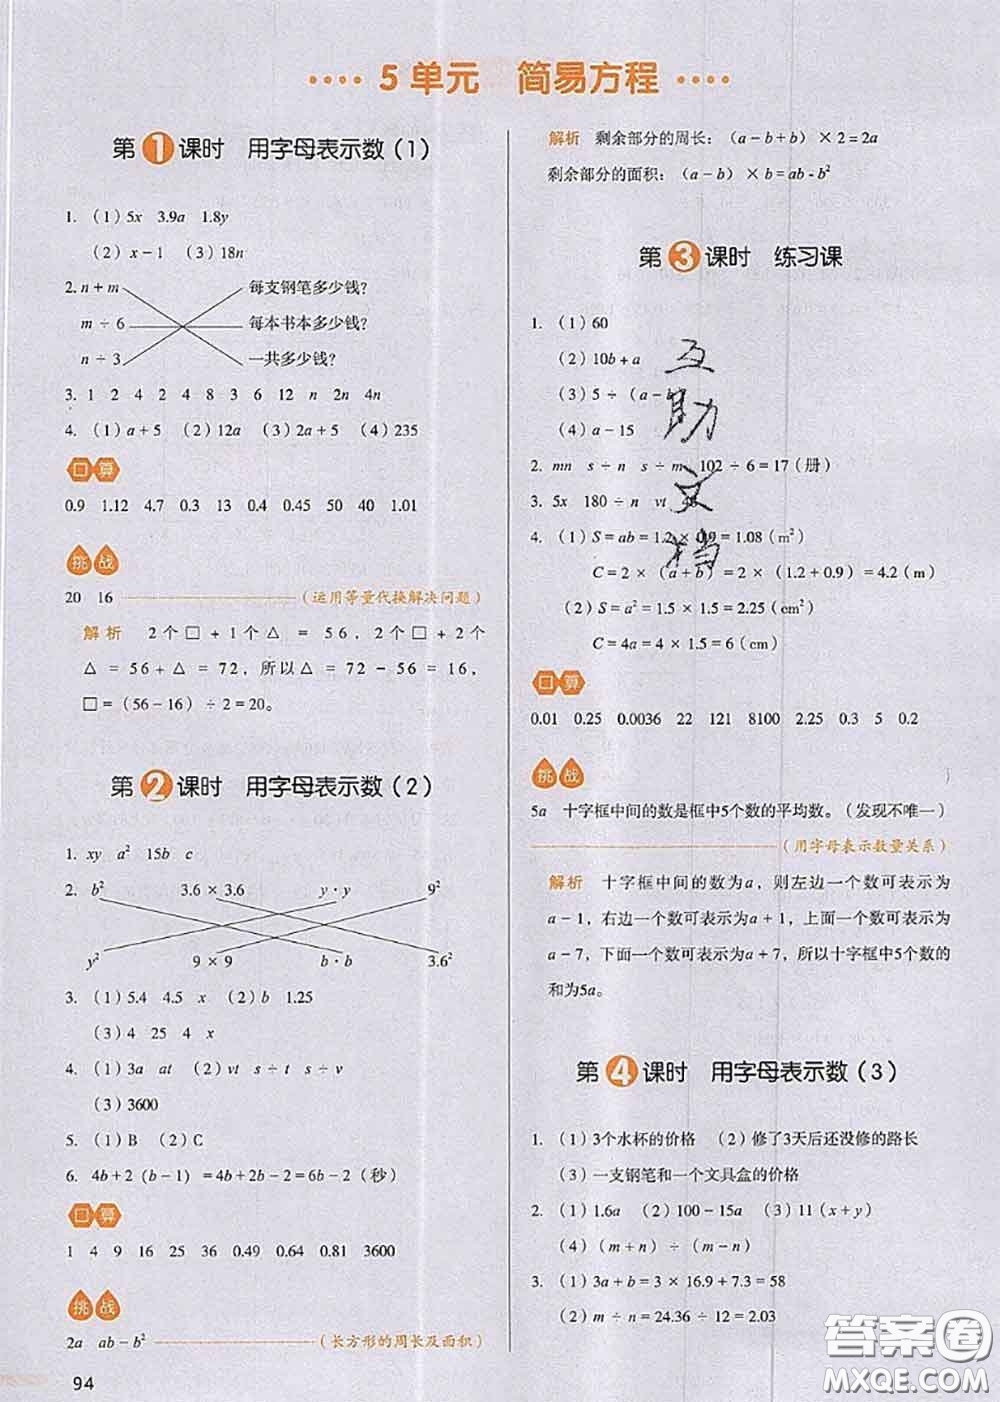 5 单元 简易方程
第1课时 用字母表示数(1)
1. (1)5x 3.9a 1.8y
(2) x-1 (3)18n
2. n+m 每支钢笔多少钱?
m÷6 每本书本多少钱?
n÷3 一共多少钱?
3. 1 2 4 2 4 8 3 6 12 n 2n 4n
4. (1)a+5 (2)12a (3)2a+5 (4)235
口算
0.9 1.12 4.7 0.3 13 0.4 0.45 50 40 1.01
挑战
20 16 (运用等量代换解决问题)
解析 2个□+1个△ = 56, 2个□+2个
△ = 56+△ = 72, 所以△ = 72 - 56 = 16,
□=(56-16)÷2=20。
第2课时 用字母表示数(2)
1. xy a² 15b c
2. b² 3.6×3.6 y·y 9²
y² 9×9 b·b 3.6²
3. (1)5.4 4.5 x (2)b 1.25
(3)4 25 4 x
4. (1)3a at (2)vt s÷t s÷v
(3)3600
5. (1)B (2)C
6. 4b+2 (b-1) =4b+2b-2=6b-2(秒)
口算
1 4 9 16 25 36 0.49 0.64 0.81 3600
挑战
2a ab-b² (长方形的周长及面积)
94
解析 剩余部分的周长: (a-b+b) ×2=2a
剩余部分的面积: (a-b) ×b=ab-b²
第3课时 练习课
1. (1)60
(2)10b+a
(3)5÷(a-
(4)a-15
2. mn s÷n s÷m 102÷6=17(册)
3. 5x 180÷n vt
4. (1)S=ab=1.2×0.9=1.08(m²)
C=2×(a+b)=2×(1.2+0.9)=4.2(m)
(2)S=a²=1.5×1.5=2.25(cm²)
C=4a=4×1.5=6(cm)
口算
0.01 0.25 0.0036 22 121 8100 2.25 0.3 5 0.2
挑战
5a 十字框中间的数是框中5个数的平均数。(发现不唯一)
(用字母表示数量关系)
解析 十字框中间的数为a,则左边一个数可表示为
a-1,右边一个数可表示为a+1,上面一个数可表示为
a-7,下面一个数可表示为a+7,所以十字框中5个数的
和为5a。
第4课时 用字母表示数(3)
1. (1)3个水杯的价格 (2)修了3天后还没修的路长
(3)一支钢笔和一个文具盒的价格
2. (1)1.6a (2)100-15a (3)11(x+y)
(4)(m+n)÷(m-n)
3. (1)3a+b=3×16.9+7.3=58
(2)m÷n=24.36÷12=2.03
互助文档
答案圈
MXQE.COM